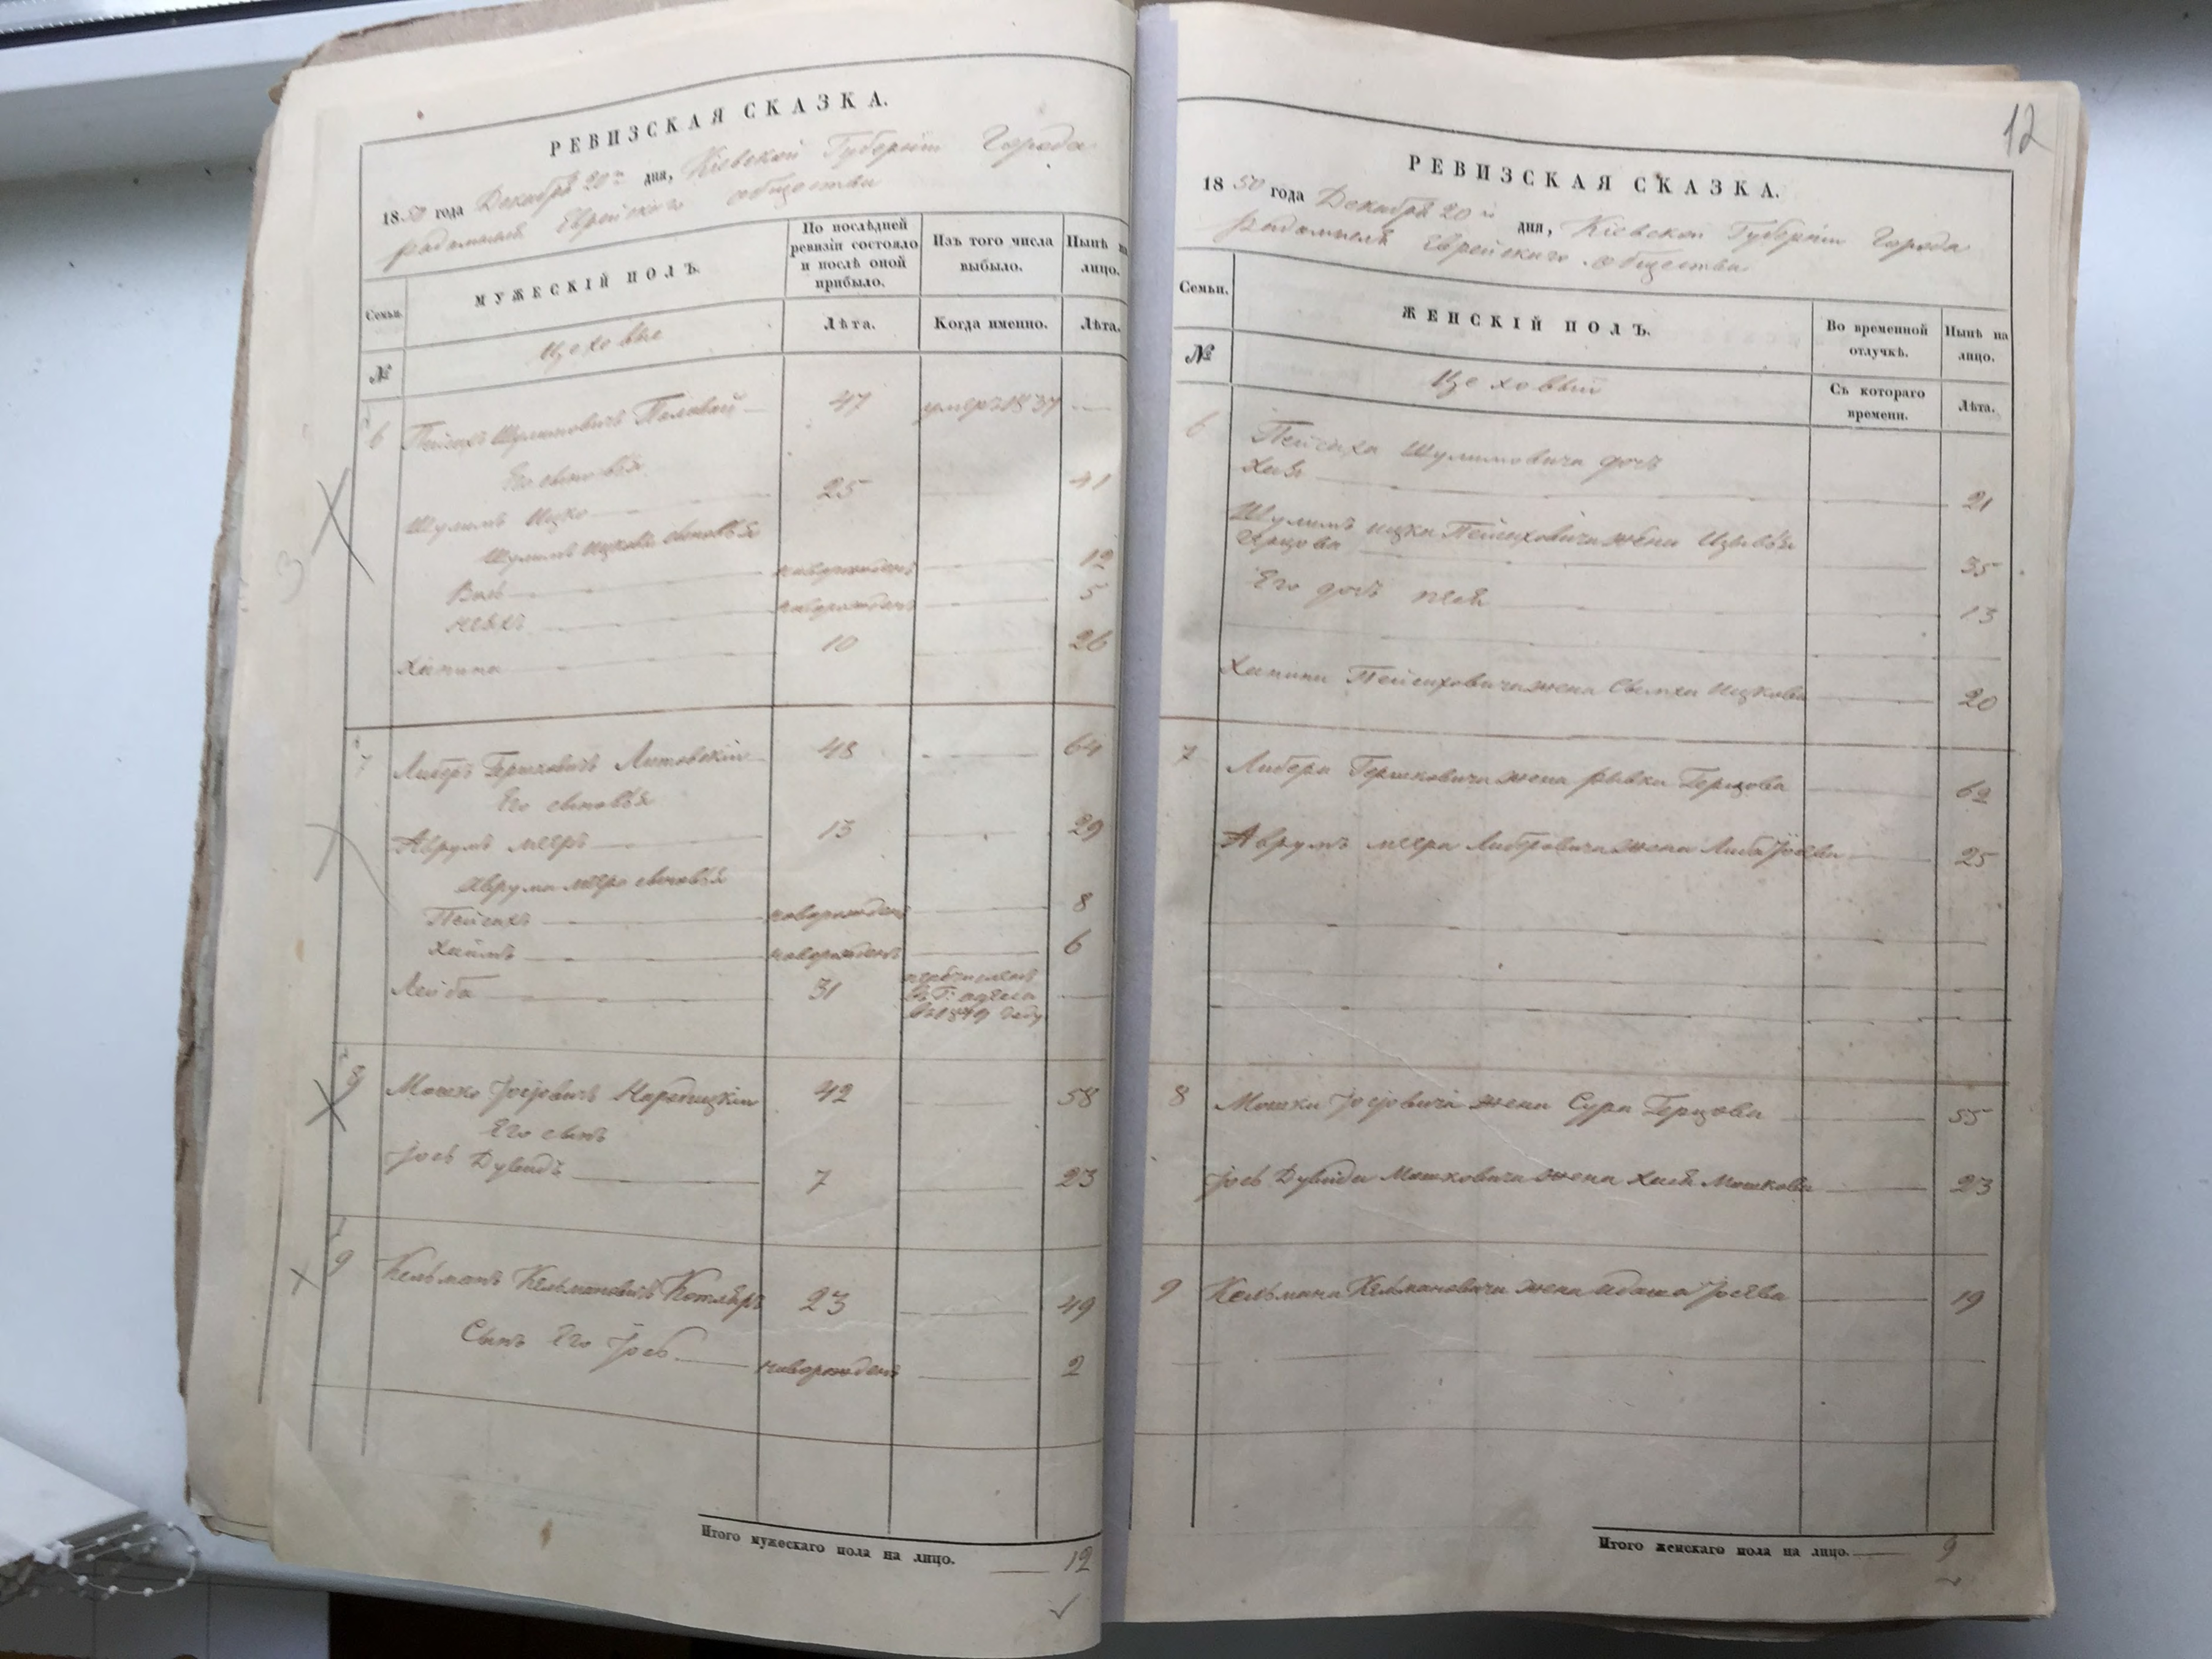 РЕВИЗСКАЯ СКАЗКА.
1850 года Декабря 20го дня, Кіевской Губерніи Города
Радомысля Еврейскаго общества
Семьи.
МУЖЕСКІЙ ПОЛЪ.
По послѣдней ревизіи состояло и послѣ оной прибыло.
Изъ того числа выбыло.
Нынѣ на лицо.
№
Цеховые
Лѣта.
Когда именно.
Лѣта.
6 Пейсахъ Шулимовичъ Половой 47 умеръ 1837
Его сыновья
Шулимъ Ицко 25 41
Шулимъ Ицковы сыновья
новорожденъ 12
новорожденъ 5
Ханина 10 26
7 Либеръ Гершковичъ Литовскій 48 64
Его сыновья
Аврумъ Мееръ 13 29
Аврума Меера сыновья
Пейсахъ новорожденъ 8
Хаимъ новорожденъ 6
Лейба 31 перечисленъ
въ Г. Одесса
въ 1849 году
8 Мошко Іосіовичъ Народицкій 42 58
Его сынъ
Іось Дувидъ 7 23
9 Кельманъ Кельмановичъ Котляръ 23 49
Сынъ Его Іось новорожденъ 2
Итого мужескаго пола на лицо. 12
12
РЕВИЗСКАЯ СКАЗКА.
1850 года Декабря 20го дня, Кіевской Губерніи Города
Радомысля Еврейскаго общества
Семьи.
ЖЕНСКІЙ ПОЛЪ.
Во временной отлучкѣ.
Нынѣ на лицо.
№
Цеховый
Съ котораго времени.
Лѣта.
6 Пейсаха Шулимовича дочь
Хая 21
Шулимъ Ицки Пейсаховича жена
Герцова 35
Его дочь 13
Ханини Пейсаховича жена Сымха Ицкова 20
7 Либера Гершковича жена Рывка Герцова 62
Аврумъ Меера Либеровича жена Либа Іосева 25
8 Мошки Іосіовича жена Сура Герцова 55
Іось Дувида Мошковича жена Хая Мошкова 23
9 Кельмана Кельмановича жена Адаса Іосева 19
Итого женскаго пола на лицо. 9